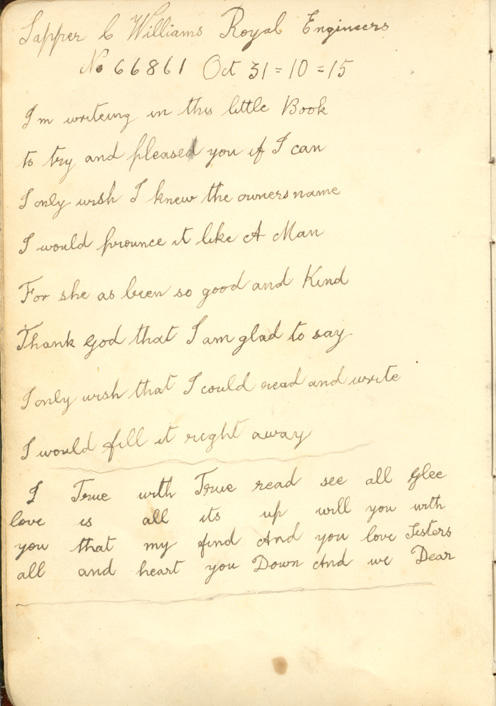 Sapper C Williams Royal Engineers
No 66861 Oct 31=10=15
I'm writeing in this little Book
to try and pleased you if I can
I only wish I knew the owners name
I would prounce it like A Man
For she as been so good and Kind
Thank God that I am glad to say
I only wish that I could read and write
I would fill it right away
I True with True read see all Glee
love is all its up will you with
you that my find And you love Sisters
all and heart you Down And we Dear